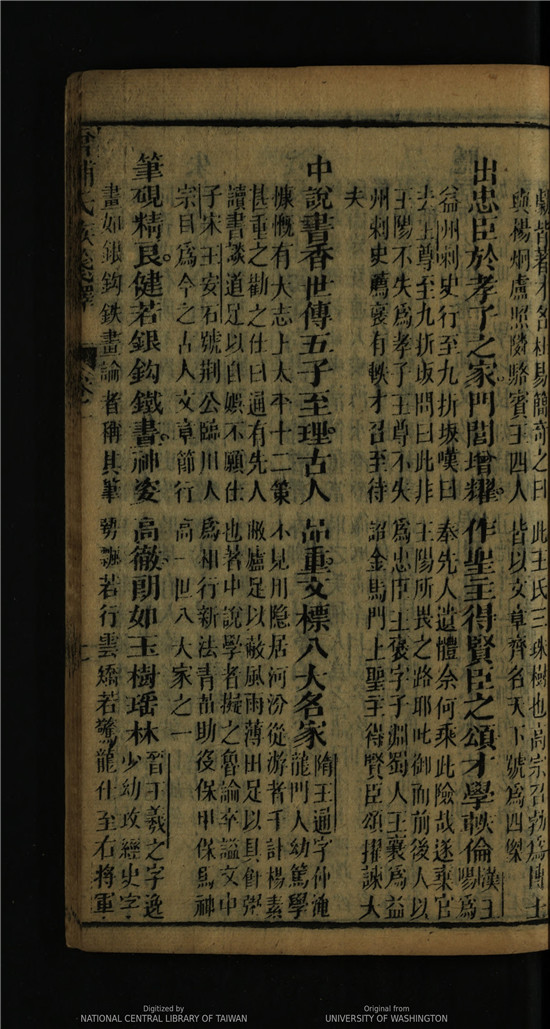 劇皆著才名杜易簡奇之曰此王氏三珠樹也高宗召勃為博士
與楊炯盧照隣駱賓王四人皆以文章齊名天下號為四傑
出忠臣於孝子之家門閭增耀作聖主得賢臣之頌才學軼倫漢王陽為
益州刺史行至九折坂嘆曰奉先人遺體余何乘此險哉遂棄官
去王尊至九折坂問曰此非王陽所畏之路耶叱御而前後人以
王陽不失為孝子王尊不失為忠臣王褒字子淵蜀人王襄為益
州刺史薦襃有軼才召至待詔金馬門上聖主得賢臣頌擢諫大
夫
中說書香世傳五子至理古人品重文標八大名家隋王通字仲淹龍門人幼篤學
慷慨有大志上太平十二策不見用隱居河汾從游者千計楊素
甚重之勸之仕曰通有先人敝廬足以蔽風雨薄田足以具饘粥
讀書談道足以自娛不願仕也著中說學者擬之魯論卒謚文中
子宋王安石號荆公臨川人為相行新法青苗助役保甲保馬神
宗目為今之古人文章節行高一世八大家之一
筆硯精良健若銀鈎鐵畫神姿高徹朗如玉樹瑶林晉王羲之字逸少幼攻經史字
畫如銀鈎鉄畫論者稱其筆勢飄若行雲矯若驚龍仕至右將軍
增補氏族箋釋 卷一 七
Digitized by
NATIONAL CENTRAL LIBRARY OF TAIWAN
Original from
UNIVERSITY OF WASHINGTON